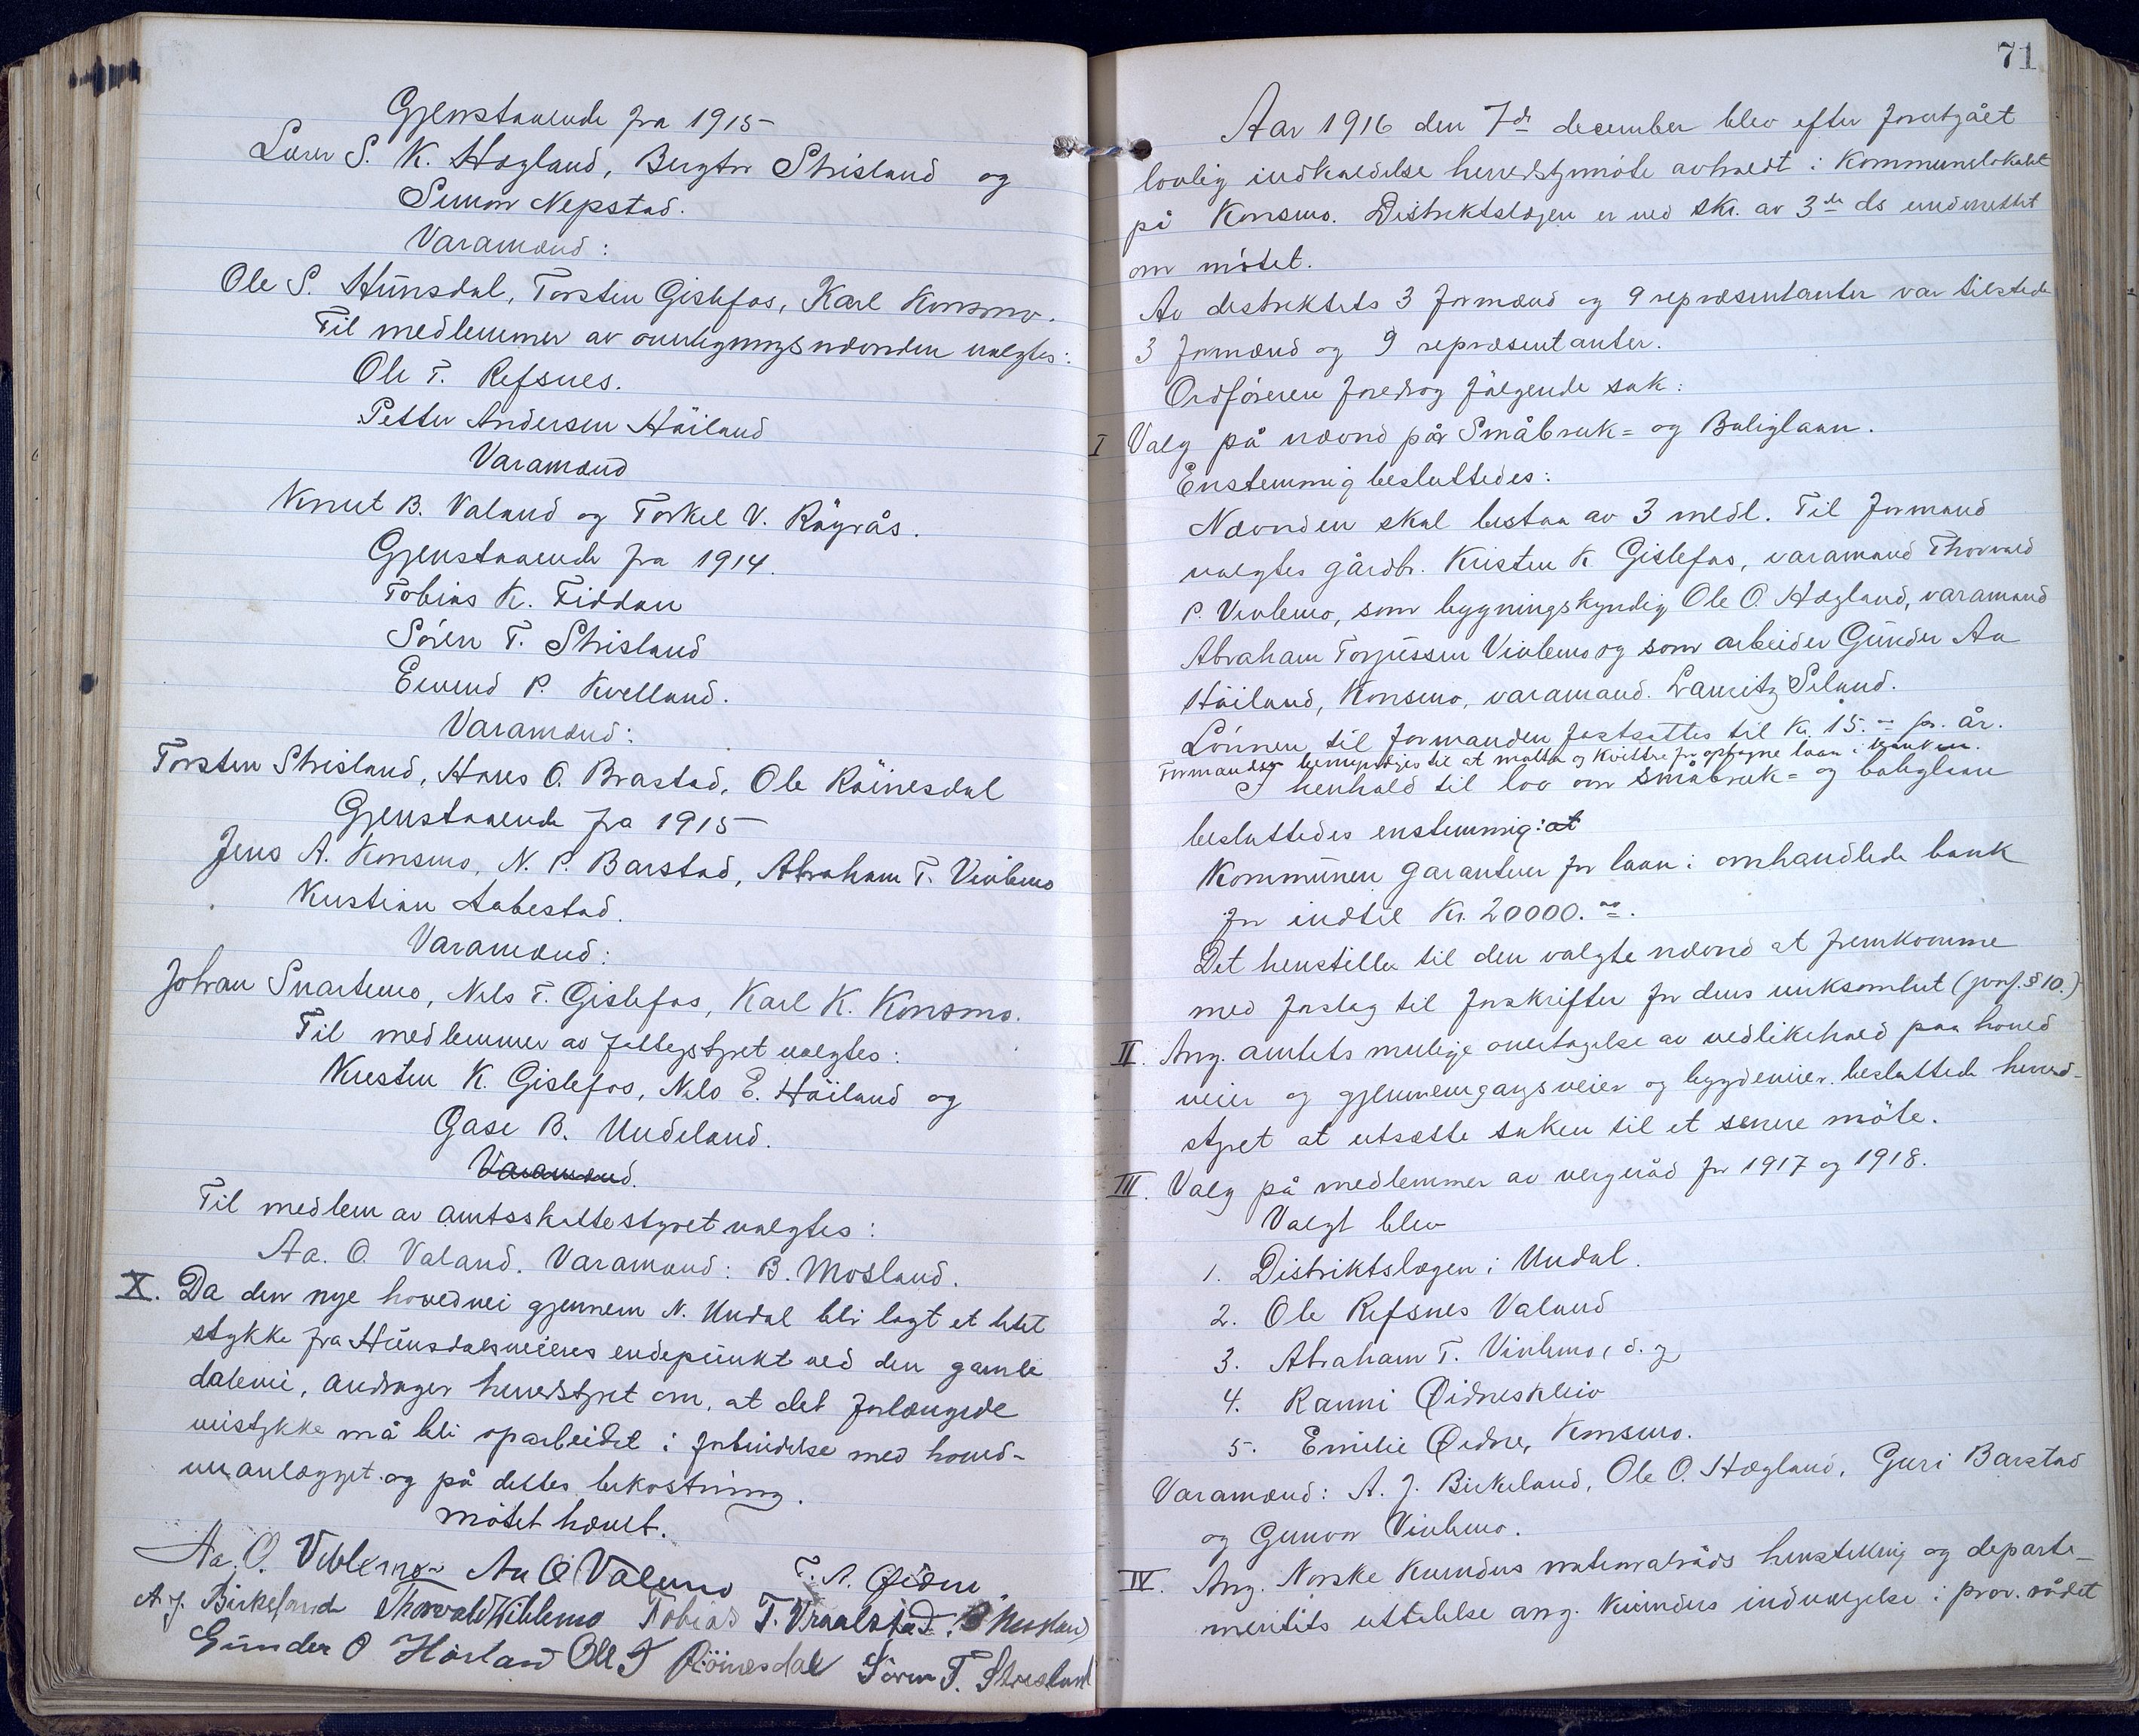 Gjenstaaende fra 1915
Lærer S. K. Høgland, Bergtor Strisland og
Simon Nepstad.
Varamænd:
Ole S. Hünsdal, Torsten Gislefos, Karl Konsmo.
Til medlemmer av overligningsnævnden valgtes:
Ole T. Refsnes.
Petter Andersen Høiland
Varamænd
Knut B. Valand og Torkel V. Røyrås.
Gjenstaaende fra 1914.
Tobias K. Fiddan
Sören T. Strisland
Eivind P. Kvelland.
Varamænd:
Torsten Strisland, Hans O. Brastad, Ole Röinesdal
Gjenstaaende fra 1915
Jens A. Konsmo, N. P. Barstad, Abraham T. Viblemo
Kristian Aabestad.
Varamænd:
Johan Svartemo, Nils T. Gislefos, Karl K. Konsmo.
Til medlemmer av fattigstyret valgtes:
Kristen K. Gislefos, Nils E. Höiland og
Gase B. Undeland.
Varamænd.
Til medlem av amtsskattestyret valgtes:
Aa. O. Valand. Varamænd: B. Mosland.
X. Da den nye hovedvei gjennem N. Undal blir lagt et litet
stykke fra Hünsdalsveiens endepünkt ved den gamle
dalevei, andrager herredstyret om, at det forlængede
veistykke må bli oparbeidet i forbindelse med hoved-
veianlægget og på dettes bekostning.
møtet hævet.
Aa. O. Viblemo Aa O Valand T. A. Øidne
A. J. Birkeland Thorvald Viblemo Tobias T. Vraalstad.
Günder O Höiland Ole T Röinesdal Sören T. Strisland
71
Aar 1916 den 7de december blev efter forutgået
lovlig indkaldelse herredstyrmöte avholdt i Kommunelokalet
på Konsmo. Distriktslægen er ved skr. av 3de ds underrettet
om mötet.
Av distriktets 3 formænd og 9 repræsentanter var tilstede
3 formænd og 9 repræsentanter.
Ordföreren foredrog fölgende sak:
I Valg på nævnd för Småbruk= og Boliglaan.
Enstemmig besluttedes:
Nævnden skal bestaa av 3 medl. Til formand
valgtes gårdbr. Kristen K. Gislefos, varamand Thorvald
P. Viblemo, som bygningskyndig Ole O. Høgland, varamand
Abraham Torjüssen Viblemo og som arbeider Günder Aa
Höiland, Konsmo, varamand. Lauritz Seland.
Lönnen til formanden fastsattes til Kr. 15.00 pr. år.
Formanden bemyndiges til at motta og kvittere for optagne laan i banken.
I henhold til lov om småbruk= og boliglaan
besluttedes enstemmig: at
Kommünen garanterer for laan i omhandlede bank
for indtil Kr. 20000.00.
Det henstilles til den valgte nævnd at fremkomme
med forslag til forskrifter for dens virksomhet (jvnf. § 10.)
II. Ang. amtets mulige overtagelse av vedlikehold paa hoved
veier og gjennemgangsveier og bygdeveier besluttede herred-
styret at utsætte saken til et senere möte.
III. Valg på medlemmer av vergeråd for 1917 og 1918.
Valgt blev
1. Distriktslægen i Undal.
2. Ole Refsnes Valand
3. Abraham T. Viblemo, d. y.
4. Ranni Øidneskleiv
5. Emilie Øidne, Konsmo.
Varamænd: A. J. Birkeland, Ole O. Høgland, Guri Barstad
og Gunvor Viblemo.
IV. Ang. Norske Kvinders nationalråds henstilling og departe-
mentets uttalelse ang. kvinders indvælgelse i prov. rådet